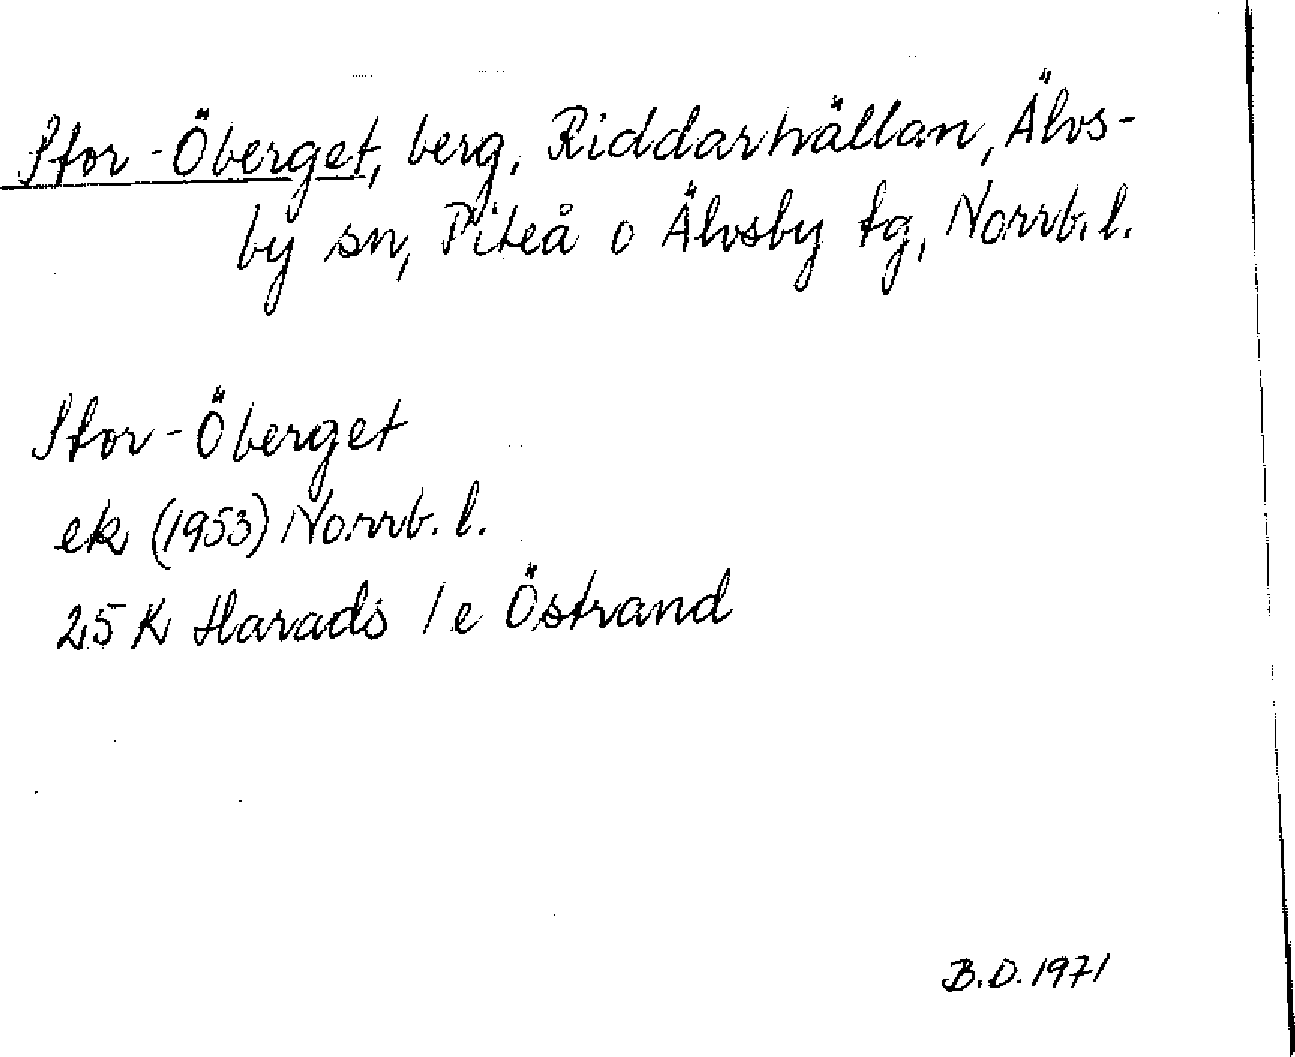 Stor-Öberget, berg, Riddarhällan, Älvs-
by sn, Piteå o Älvsby tg, Norrb. l.
Stor-Öberget
ek (1953) Norrb. l.
25 K Harads 1 e Östrand
B.D. 1971